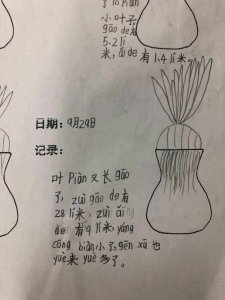 小叶子。
gāo de有
5.2lí
米,ǎi de有1.4lí米。
日期：9月29日
记录：
叶piàn又长gāo
了,zuì gāo de有
28lí米,zuì ǎi
de有9lí米,yáng
cōng biàn小了,gēn xū也
yuè来yuè多了。